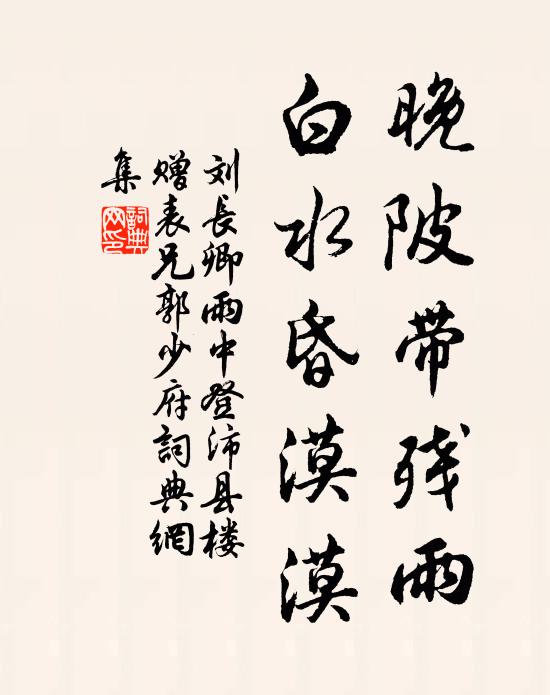 晚陂带残雨
白水昏漠漠
刘长卿雨中登沛县楼
赠表兄郭少府詞典網
集
詞典
网印